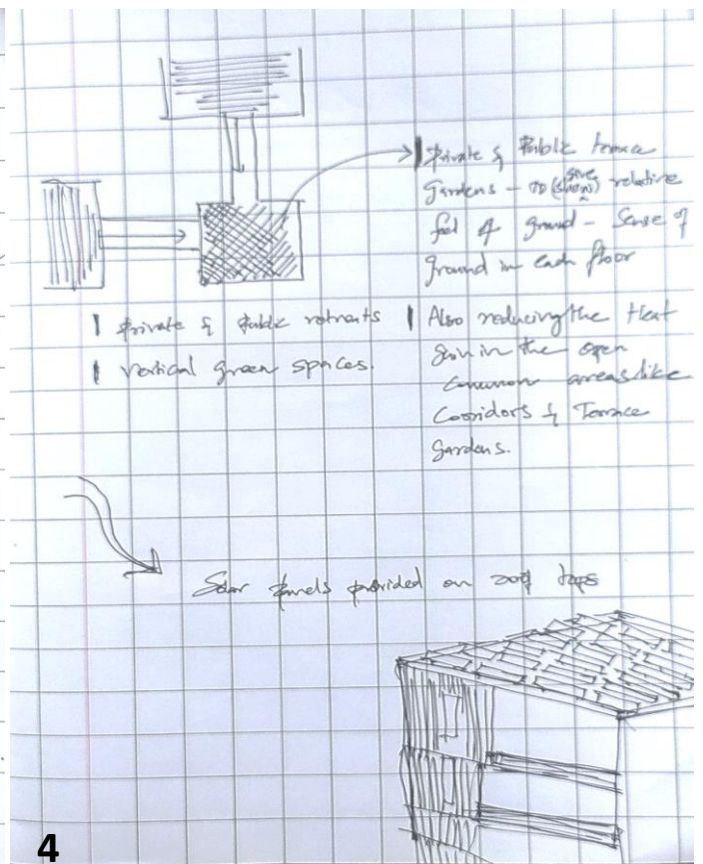 Private & Public terrace
Gardens - to (show) give relative
feel of ground - Sense of
ground in each floor
Private & Public retreats
Vertical green spaces.
Also reducing the Heat
Gain in the open
Common areas like
Corridors & Terrace
Gardens.
Solar panels provided on roof tops
4